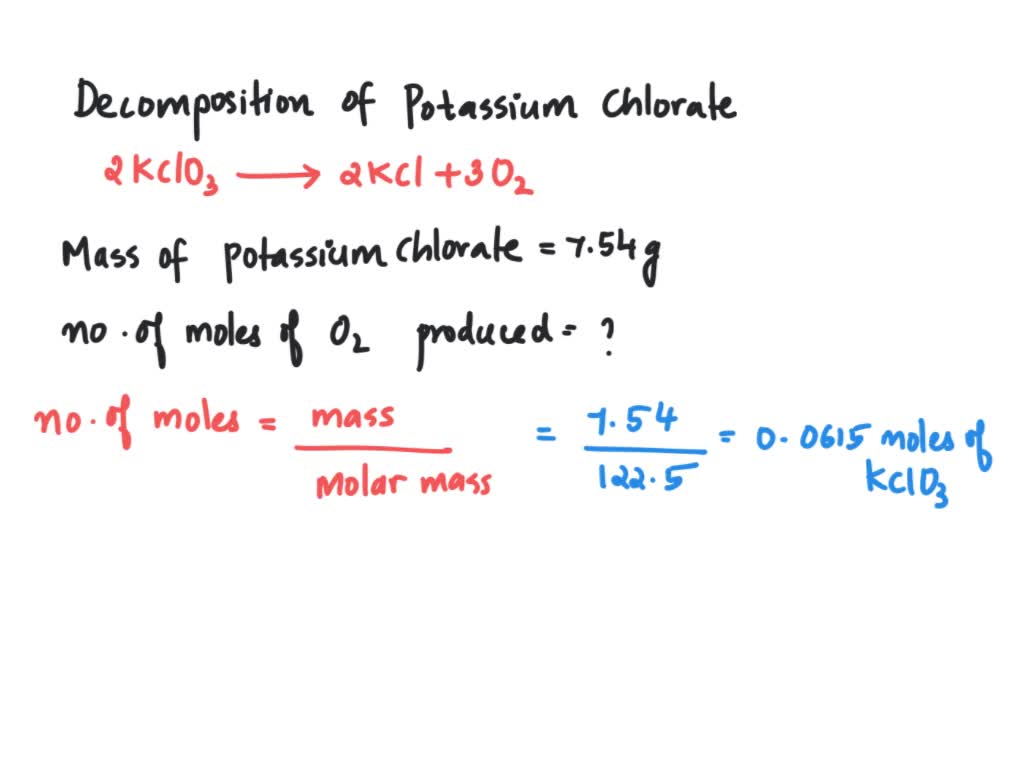 Decomposition of Potassium Chlorate
2KClO₃ → 2KCl + 3O₂
Mass of potassium chlorate = 7.54g
no. of moles of O₂ produced = ?
no. of moles = mass / Molar mass = 7.54 / 122.5 = 0.0615 moles of KClO₃